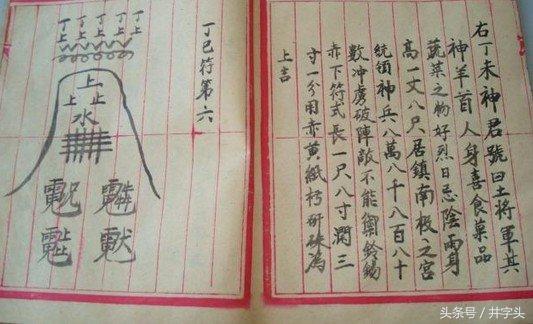 右丁未神君號曰土將軍其
神羊首人身喜食菓品
蔬菜之物好烈日忌陰雨身
高一丈八尺居鎮南极之宫
統領神兵八萬八千八百八十
數冲虜破陣敵不能禦鈴錫
赤下符式長一尺八寸濶三
寸一分用赤黄紙朽研硃為
上吉
丁巳符第六
丁丁丁丁丁
上上上上上
上
上止
水
头条号 / 井字头